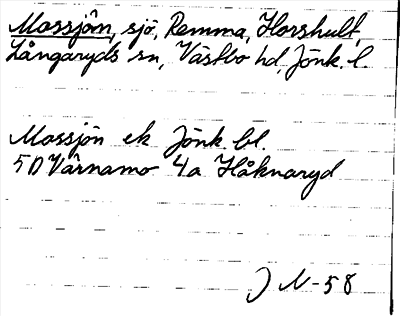 Mossjön, sjö, Remma, Horshult,
Långaryds sn, Västbo hd, Jönk. l.
Mossjön ek Jönk. bl.
5D Värnamo 4a Håknaryd
J N-58